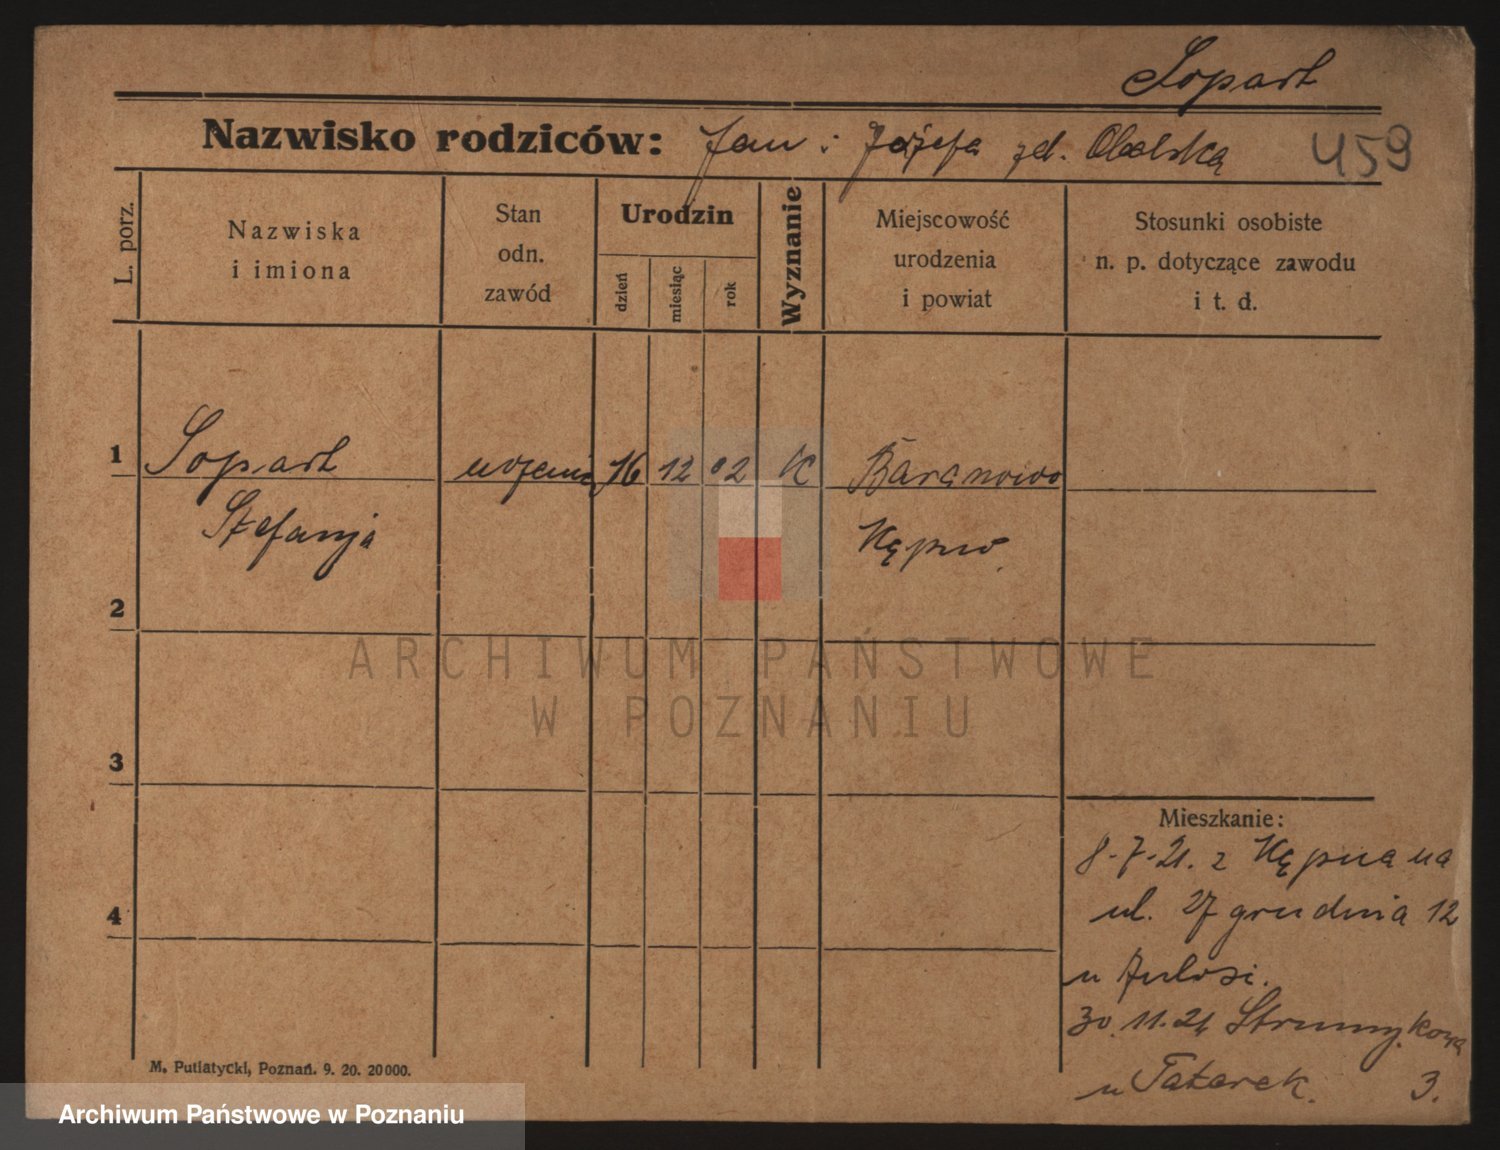 Sopart
Nazwisko rodziców: Jan i Józefa zd. Obalska
459
L. porz.
Nazwiska
i imiona
Stan
odn.
zawód
Urodzin
dzień
miesiąc
rok
Wyznanie
Miejscowość
urodzenia
i powiat
Stosunki osobiste
n. p. dotyczące zawodu
i t. d.
1 Sopart uczenia 16 12 02 K Baranowo
Stefanja Kępno
2
3
4
Mieszkanie:
8-7-21. z Kępna na
ul. 27 grudnia 12
u
30.11.21 Strumykowa
u Tatarek. 3.
M. Putiatycki, Poznań. 9. 20. 20000.
ARCHIWUM PAŃSTWOWE
W POZNANIU
Archiwum Państwowe w Poznaniu